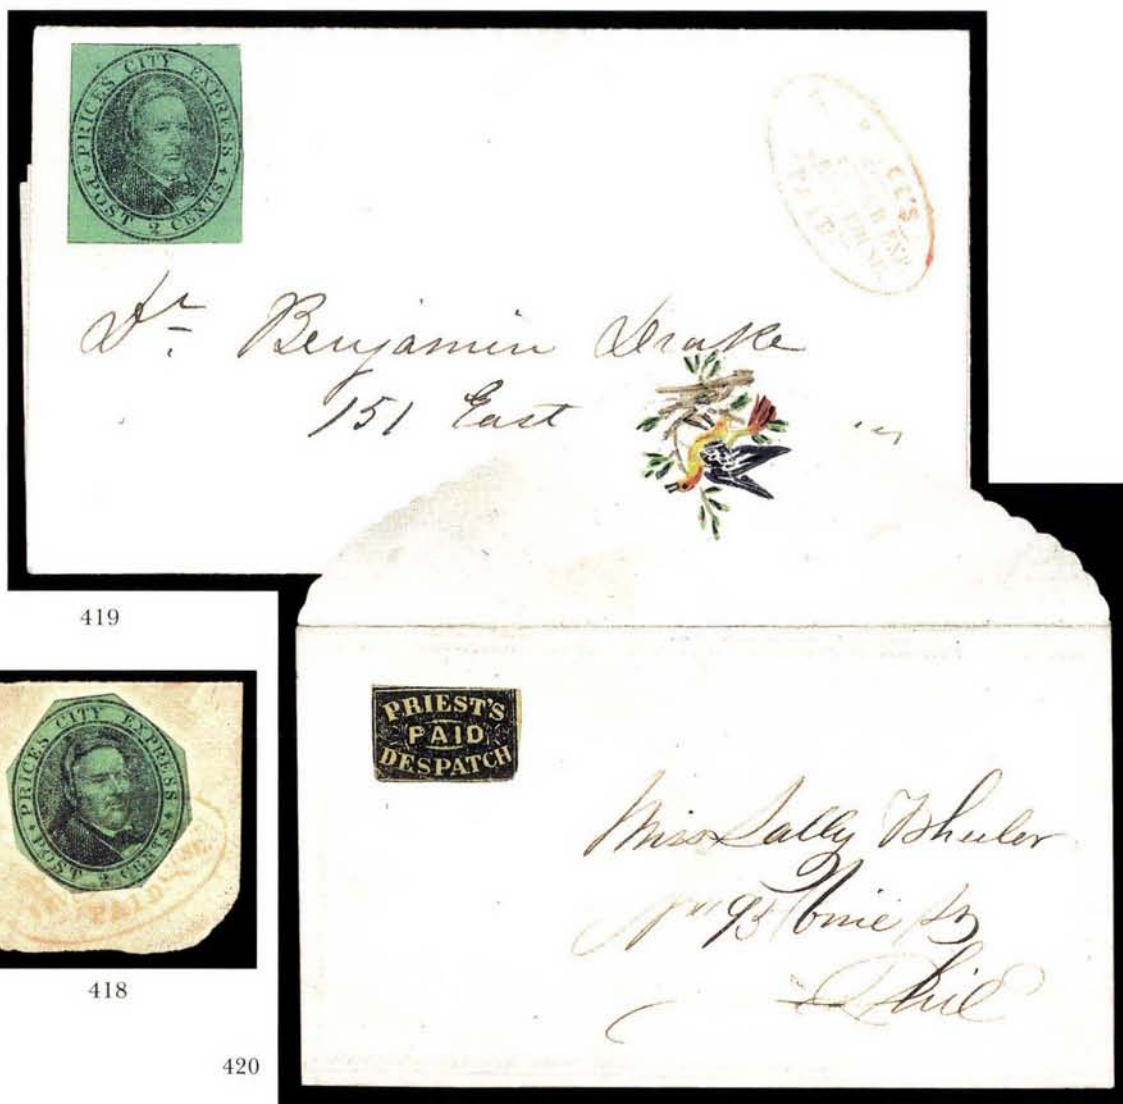 PRICES CITY EXPRESS
POST 2 CENTS
Dr. Benjamin Drake
151 East
419
PRICES CITY EXPRESS
POST 2 CENTS
PAID
418
PRIEST'S
PAID
DESPATCH
Miss Sally Wheeler
95
Phil
420